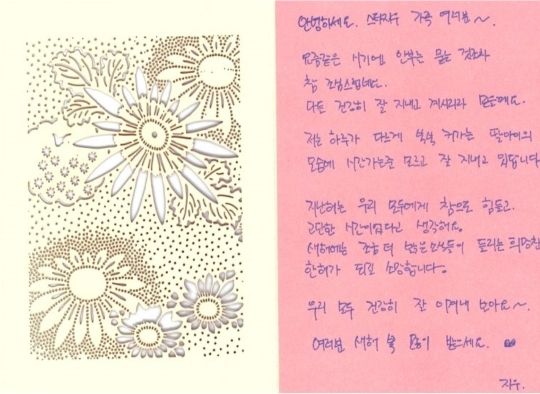 안녕하세요. 스타지우 가족 여러분~.
요즘같은 시기에 안부를 묻는 것조차
참 조심스럽네요.
다들 건강히 잘 지내고 계시리라 믿을께요.
저는 하루가 다르게 쑥쑥 커가는 딸아이의
모습에 시간가는줄 모르고 잘 지내고 있답니다
지난해는 우리 모두에게 참으로 힘들고.
고단한 시간이었다고 생각해요.
새해에는 조금 더 밝은 소식들이 들리는 희망찬
한해가 되길 소망합니다.
우리 모두 건강히 잘 이겨내 보아요~.
여러분 새해 복 많이 받으세요.
지우.